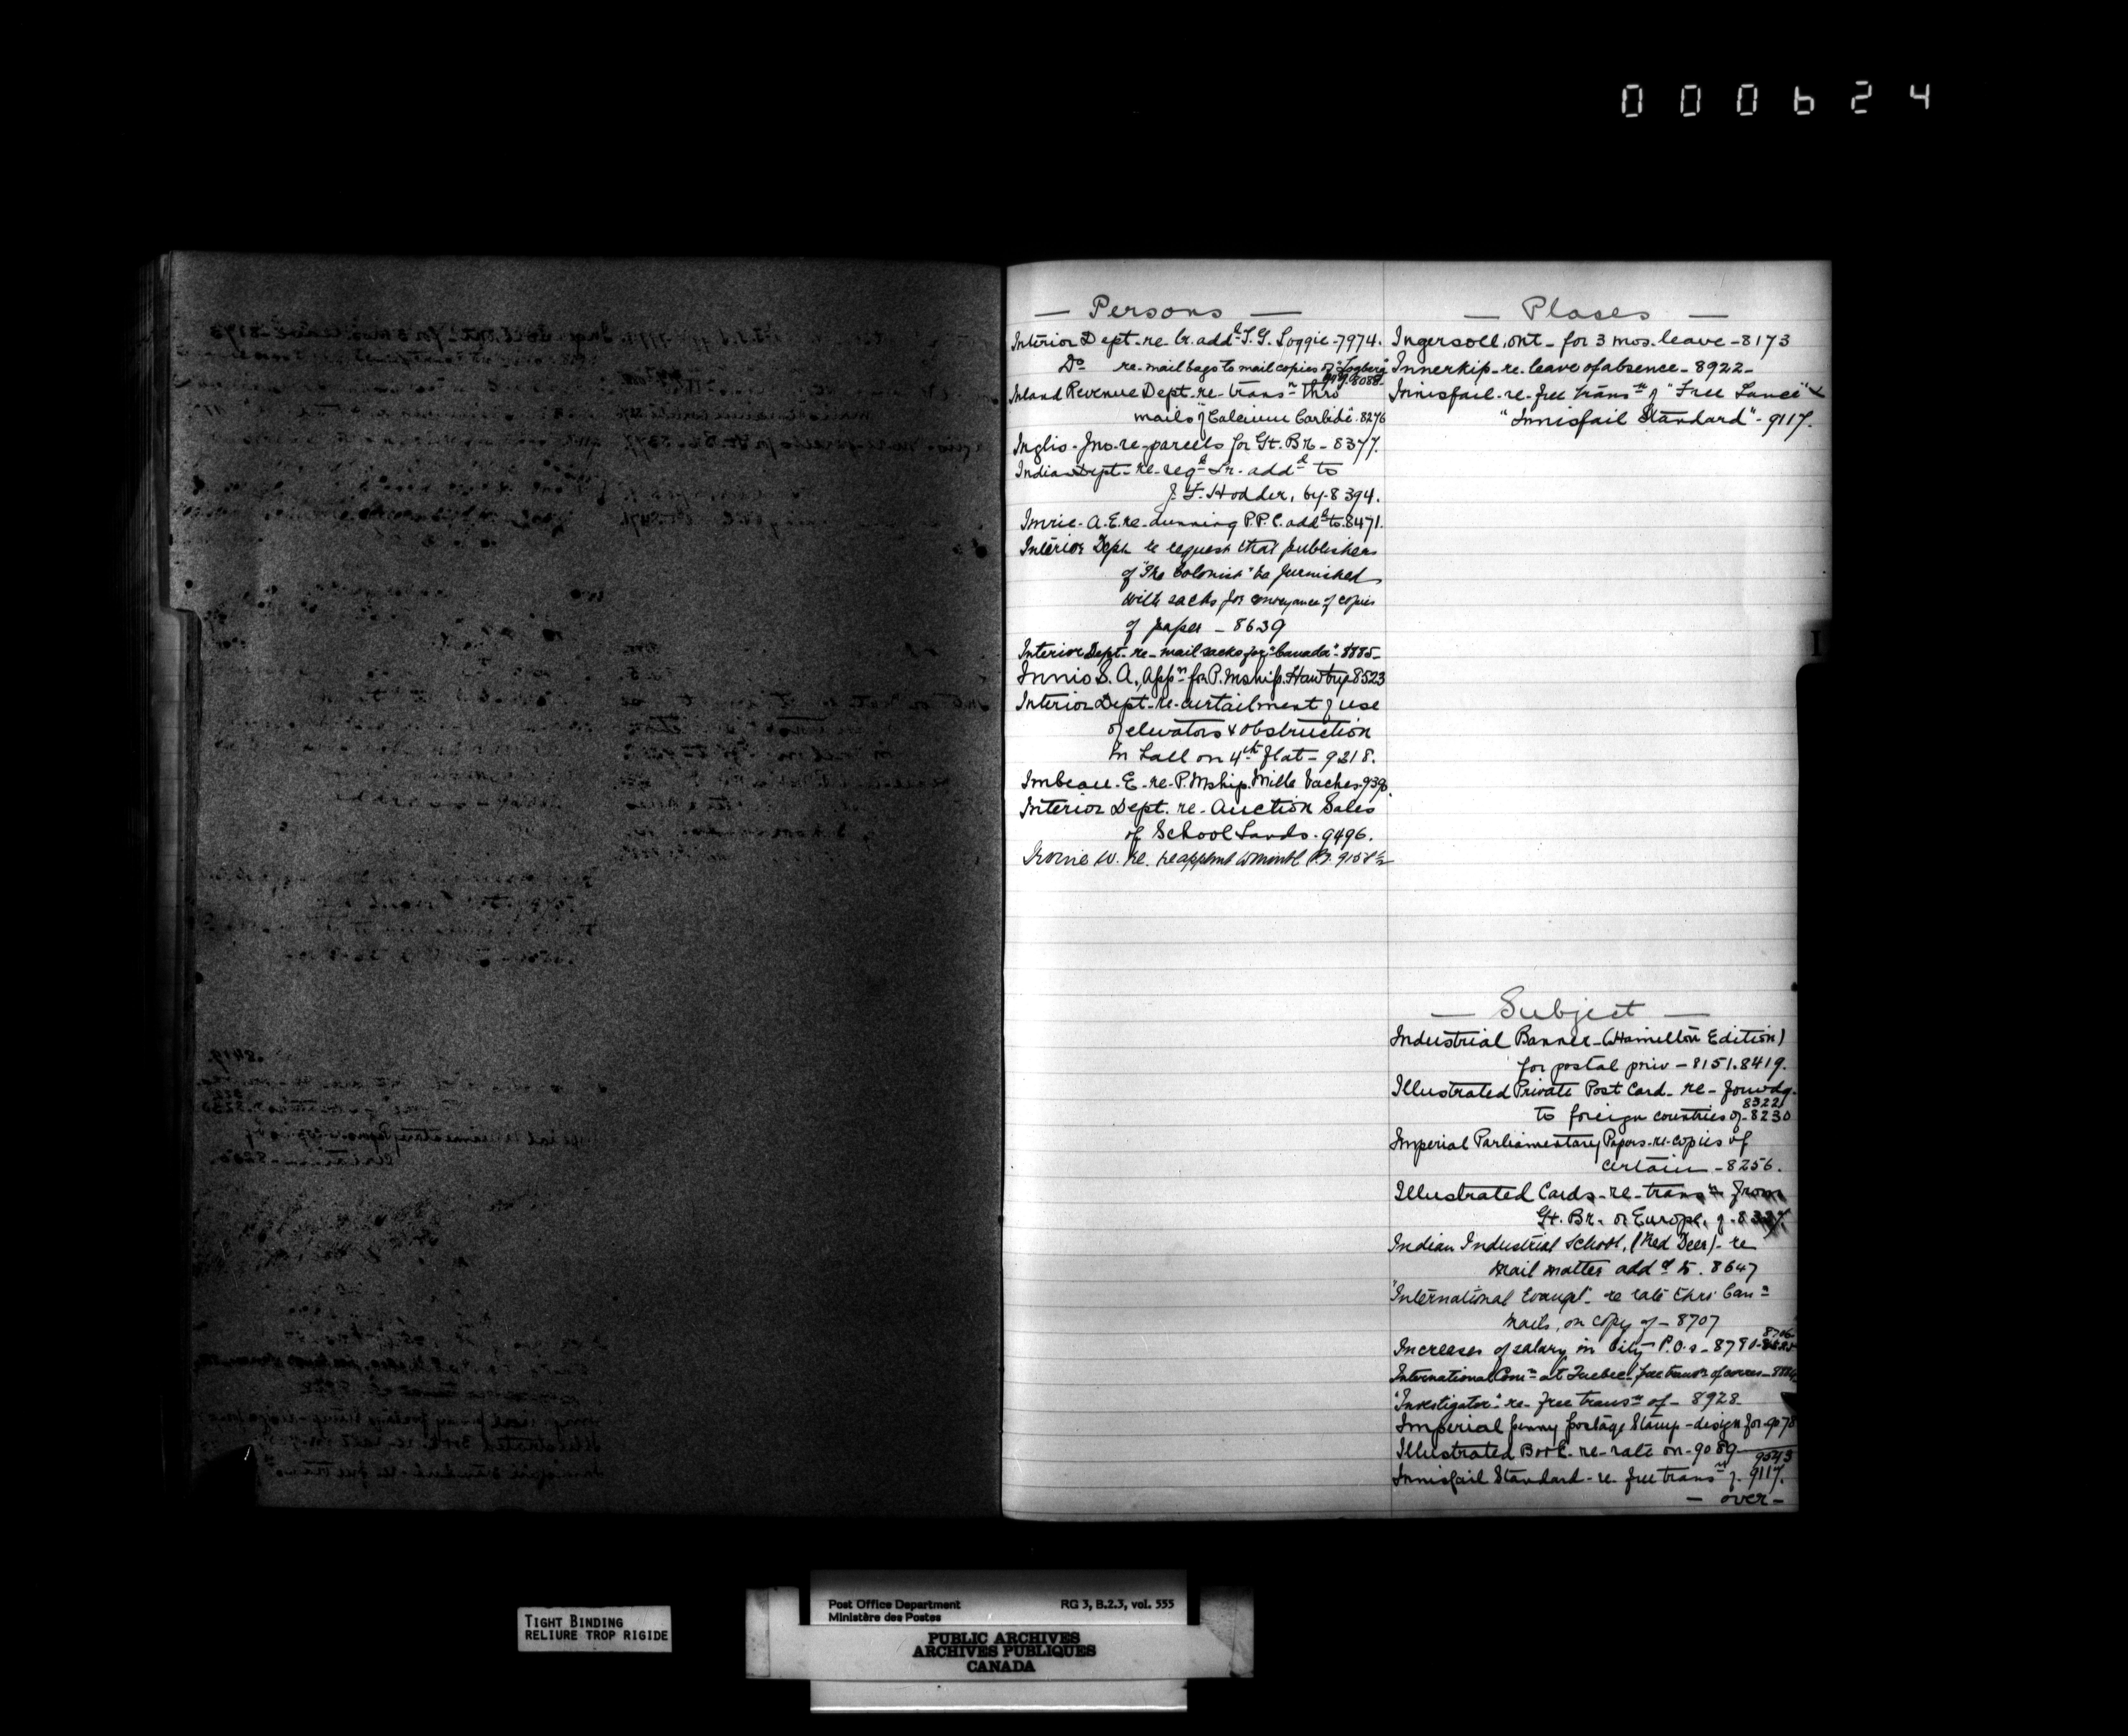 000624
— Persons —
Interior Dept-re-lr. add.d T.G. Loggie-7974.
Do re-mail bags to mail copies of "Logberg"
8088-
Inland Revenue Dept.-re-transn Thro'
mails of Calcium Carbide-8276
Inglis-Jno.-re-parcels for Gt. Br.-8377.
Indian Dept-re-regd Lr. addd to
J. F. Hodder, by-8394.
Imrie-A.E. re-dunning P.P.C. addd to-8471.
Interior Dept re request that publishers
of "The Colonist" be furnished
with sacks for conveyance of copies
of paper - 8639
Interior Dept.-re-mail sacks for "Canada"-8885-
Innis S. A., Appn for P.Mship. Hawtrey 8523
Interior Dept-re-curtailment of use
of elevators & obstruction
in hall on 4th flat-9218.
Imbeau-E-re-P.Mship. Mille Vaches-939
Interior Dept. re-Auction Sales
of School Lands-9496.
W. re.
— Places —
Ingersoll, Ont-for 3 mos. leave-8173
Innerkip-re-leave of absence-8922-
Innisfail-re-free transn of "Free Lance" &
"Innisfail Standard"-9117.
I
— Subject —
Industrial Banner-(Hamilton Edition)
for postal priv-8151.8419.
Illustrated Private Post Card-re-forwdg.
8322
to foreign countries of-8230
Imperial Parliamentary Papers-re-copies of
certain-8256.
Illustrated Cards-re-transn from
Gt. Br. or Europe, of-
Indian Industrial School, (Red Deer)-re
mail matter addd to. 8647
"International Evangt"-re rate thro' Cann
mails, on copy of-8707
8706
Increases of salary in City P.O.s-8790-
International Conn at Quebec, free transn of corres-
"Investigator"-re-free transn of-8928-
Imperial penny postage Stamp-design for-9078
Illustrated Book-re-rate on-9089
9543
Innisfail Standard-re-free transn of-9117.
- over -
TIGHT BINDING
RELIURE TROP RIGIDE
Post Office Department
Ministère des Postes
RG 3, B.2.3, vol. 555
PUBLIC ARCHIVES
ARCHIVES PUBLIQUES
CANADA